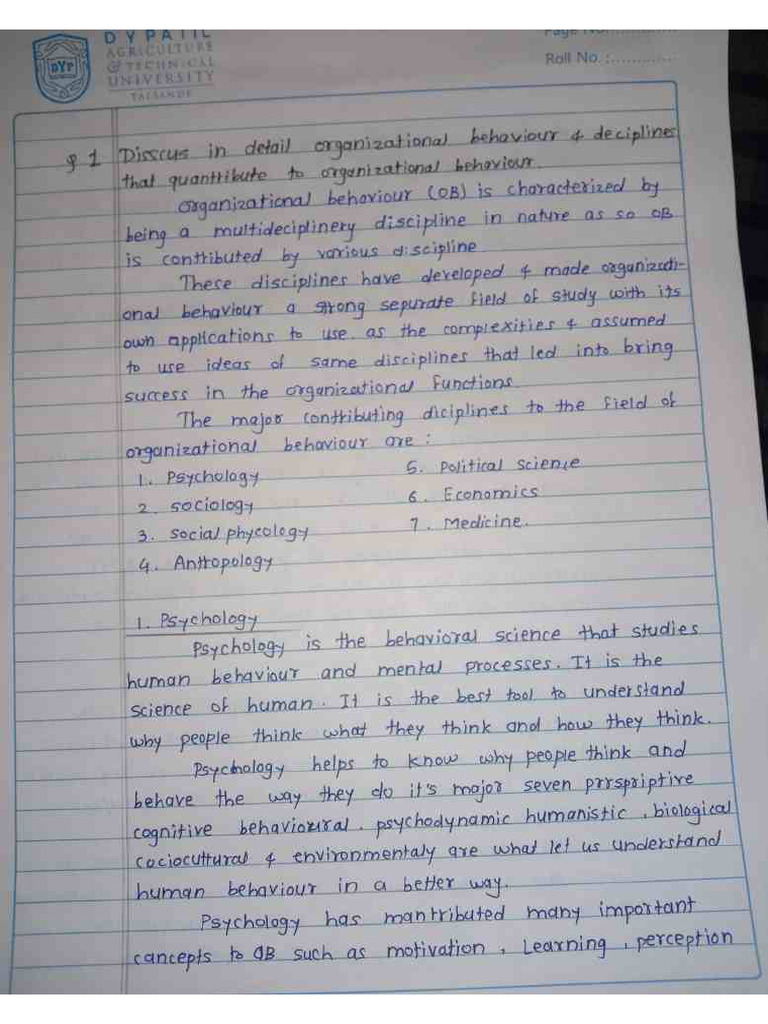 D Y PATIL
AGRICULTURE
& TECHNICAL
UNIVERSITY
TALSANDE
DYP
Page No.:
Roll No. :............
Q 1 Disscus in detail organizational behaviour & deciplines
that quanttibute to organizational behaviour.
organizational behaviour (OB) is characterized by
being a multideciplinery discipline in nature as so OB
is contributed by various discipline
These disciplines have developed & made organizati-
onal behaviour a strong sepurate field of study with its
own applications to use. as the complexities & assumed
to use ideas of same disciplines that led into bring
success in the organizational functions
The major contributing diciplines to the field of
organizational behaviour are :
1. Psychology
2. sociology
3. social phycology
4. Anttopology
5. political science
6. Economics
7. Medicine.
1. Psychology
Psychology is the behavioral science that studies
human behaviour and mental processes. It is the
science of human. It is the best tool to understand
why people think what they think and how they think.
Psychology helps to know why people think and
behave the way they do it's major seven prrspriptive
cognitive behavioural. psychodynamic humanistic, biological
cociocultural & environmentaly are what let us understand
human behaviour in a better way.
Psychology has mantributed many important
cancepts to OB such as motivation, Learning, perception